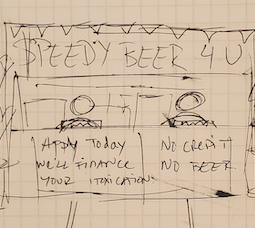 SPEEDY BEER 4 U
APPLY TODAY
WE'LL FINANCE
YOUR ITOXICATION
NO CREDIT
NO BEER